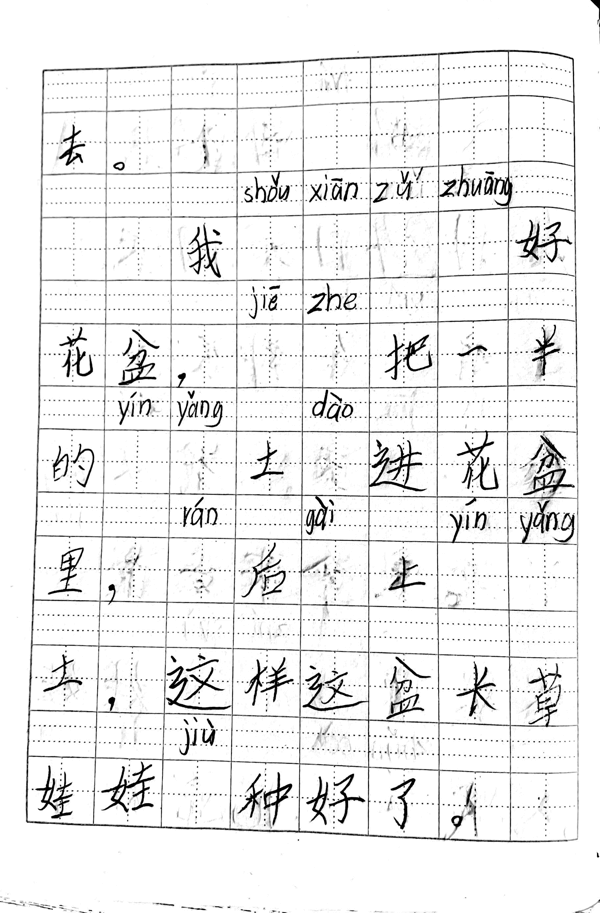 去。
shǒu xiān zǔ zhuāng
我 好
jiē zhe
花盆， 把一半
yín yǎng dào
的 土 进花盆
rán gài yín yǎng
里， 后 上
土，这样这盆长草
jiù
娃娃 种好了。